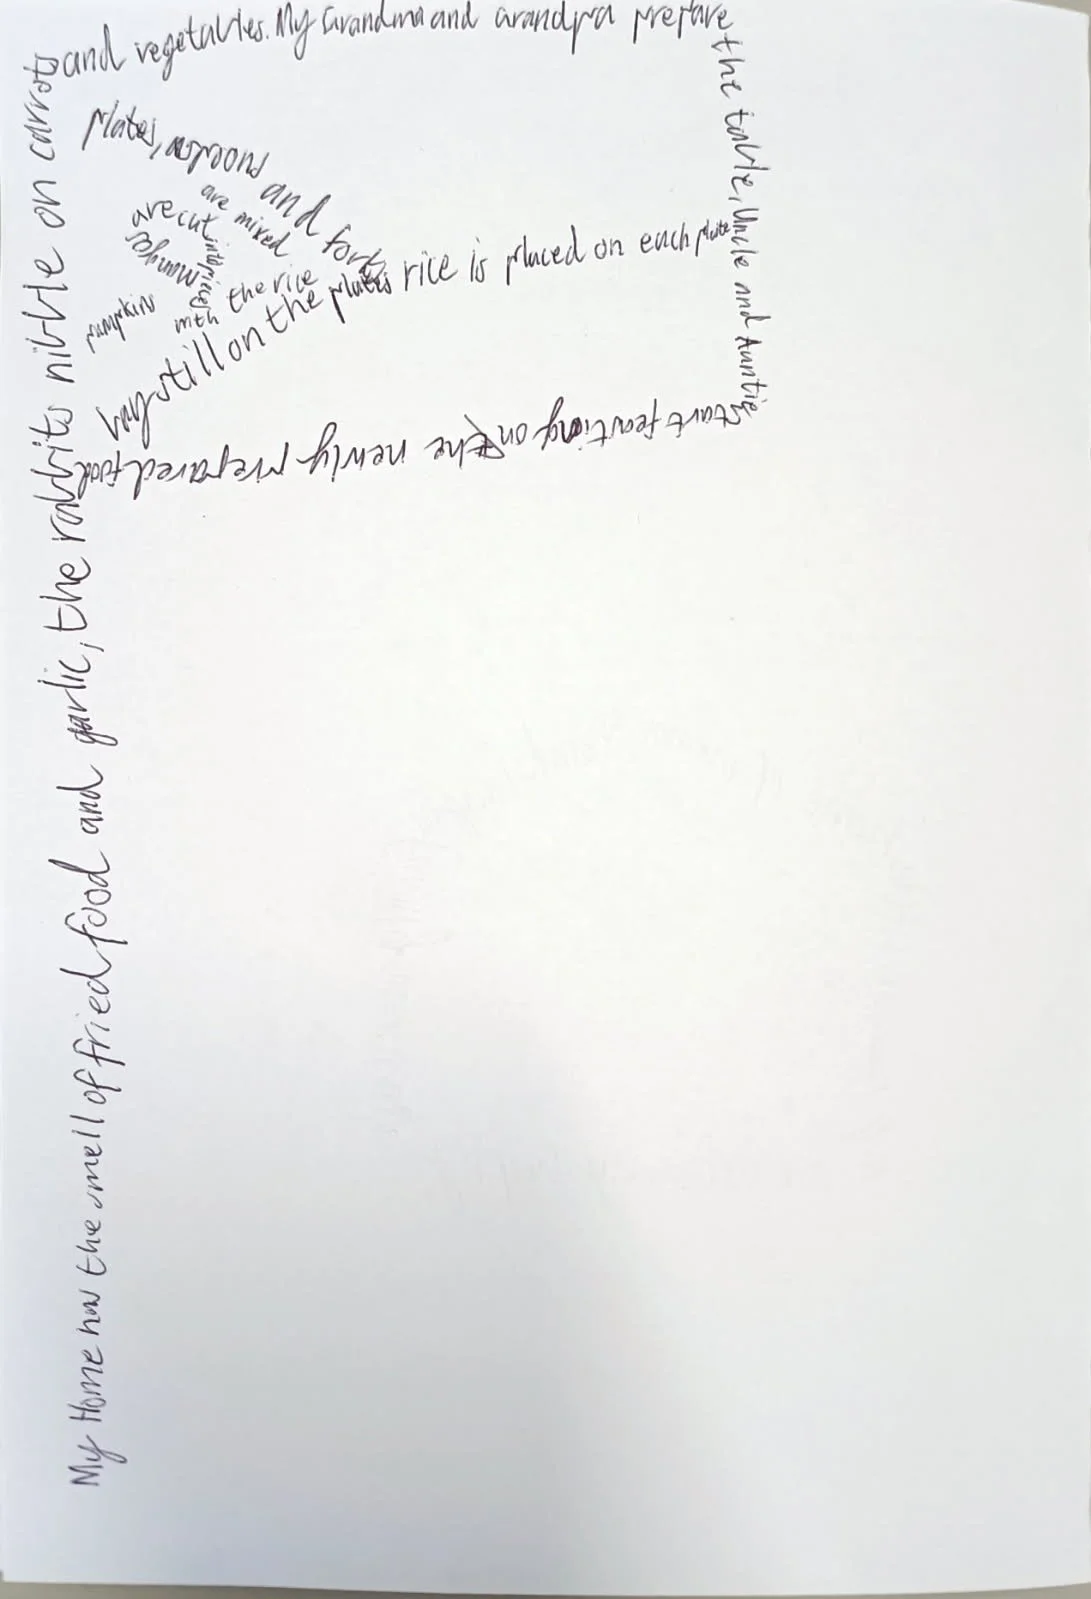 My Home has the smell of fried food and garlic, the rabbits nibble on carrots
and vegetables. My Grandma and Grandpa prepare
the table, Uncle and Auntie
start feasting on the newly prepared food
Plates, spoons and forks
lay still on the plates rice is placed on each plate
pumpkins
mangoes
are cut
into pieces
are mixed
with the rice